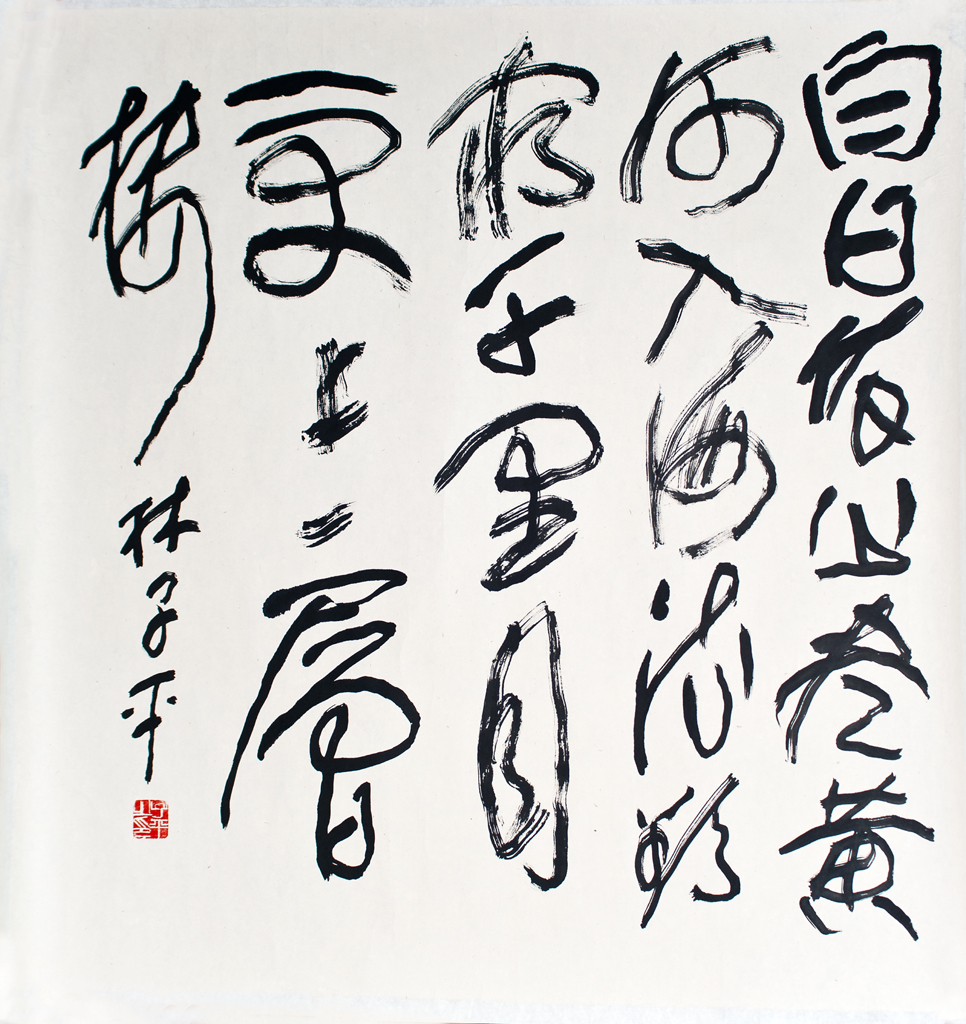 白日依山尽黄
河入海流欲
穷千里目
更上一層
楼 林子平